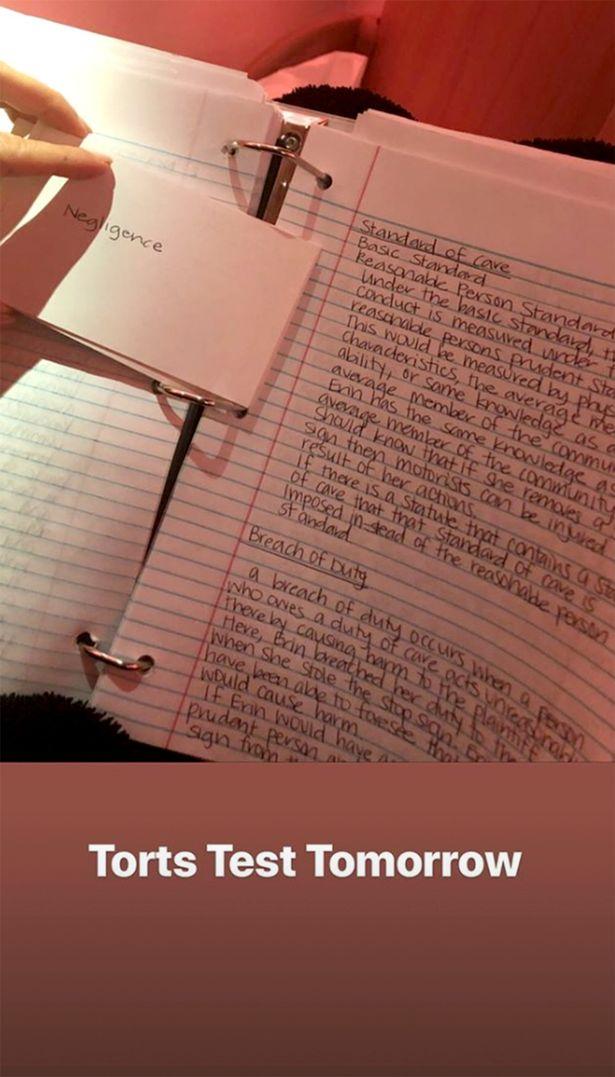 Negligence
Standard of care
Basic Standard
Reasonable Person Standard
Under the basic standard,
conduct is measured under
reasonable persons prudent
This would be measured by
characteristics, the average
ability, or same knowledge, as
average member of the
Erin has the same knowledge as
average member of the community
should know that if she removes a
sign then motorists can be injured
result of her actions.
If there is a statute that contains a
of care that that standard of care is
Imposed in-stead of the reasonable person
standard
Breach of Duty
a breach of duty occurs when a person
who owes a duty of care acts
thereby causing harm to the plaintiff
Here, Erin breathed her duty to the
when she stole the stop sign.
have been able to foresee that
would cause harm.
If Erin would have
prudent person
sign from
Torts Test Tomorrow